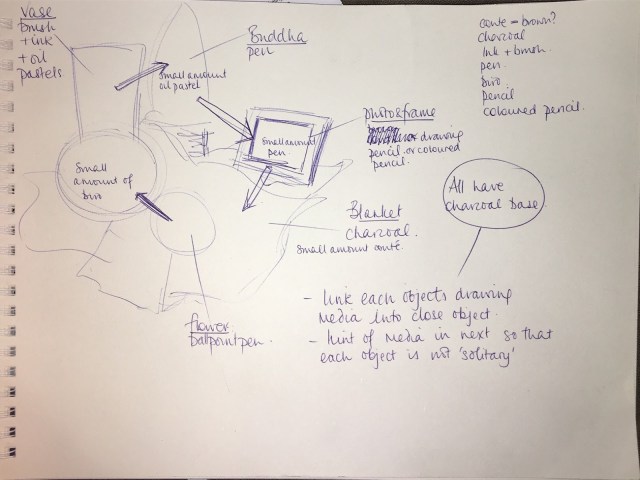 Vase
brush
+ ink
+ oil
pastels
Buddha
pen
Small amount
oil pastel
conte = brown?
charcoal
Ink + brush.
pen.
biro.
pencil
coloured pencil.
photo&frame
drawing
pencil or coloured
pencil.
Small amount
pen
Small
amount of
biro
All have
charcoal base.
Blanket
charcoal.
Small amount conté.
flower
ballpoint pen.
- link each objects drawing
media into close object.
- hint of media in next so that
each object is not 'solitary'